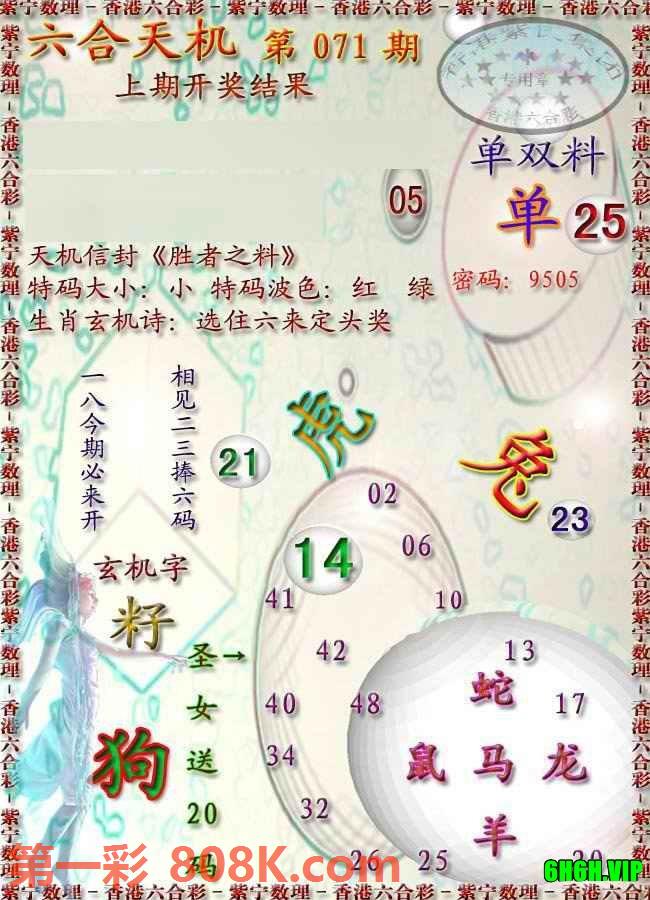 紫宁数理－香港六合彩－紫宁数理－香港六合彩－紫宁数理－香港六合彩
六合天机 第 071 期
上期开奖结果
专用章
香港六合彩
单双料
单 25
05
天机信封《胜者之料》
特码大小：小 特码波色：红 绿
密码：9505
生肖玄机诗：选住六来定头奖
相见二三捧六码
一八今期必来开
21
虎
兔
23
02
14
06
41
10
玄机字
籽
圣→
女
送
20
码
狗
42
13
40
48
蛇
17
34
鼠 马 龙
32
羊
26
25
第一彩 808K.com
6H6H.VIP
紫宁数理－香港六合彩－紫宁数理－香港六合彩－紫宁数理－香港六合彩